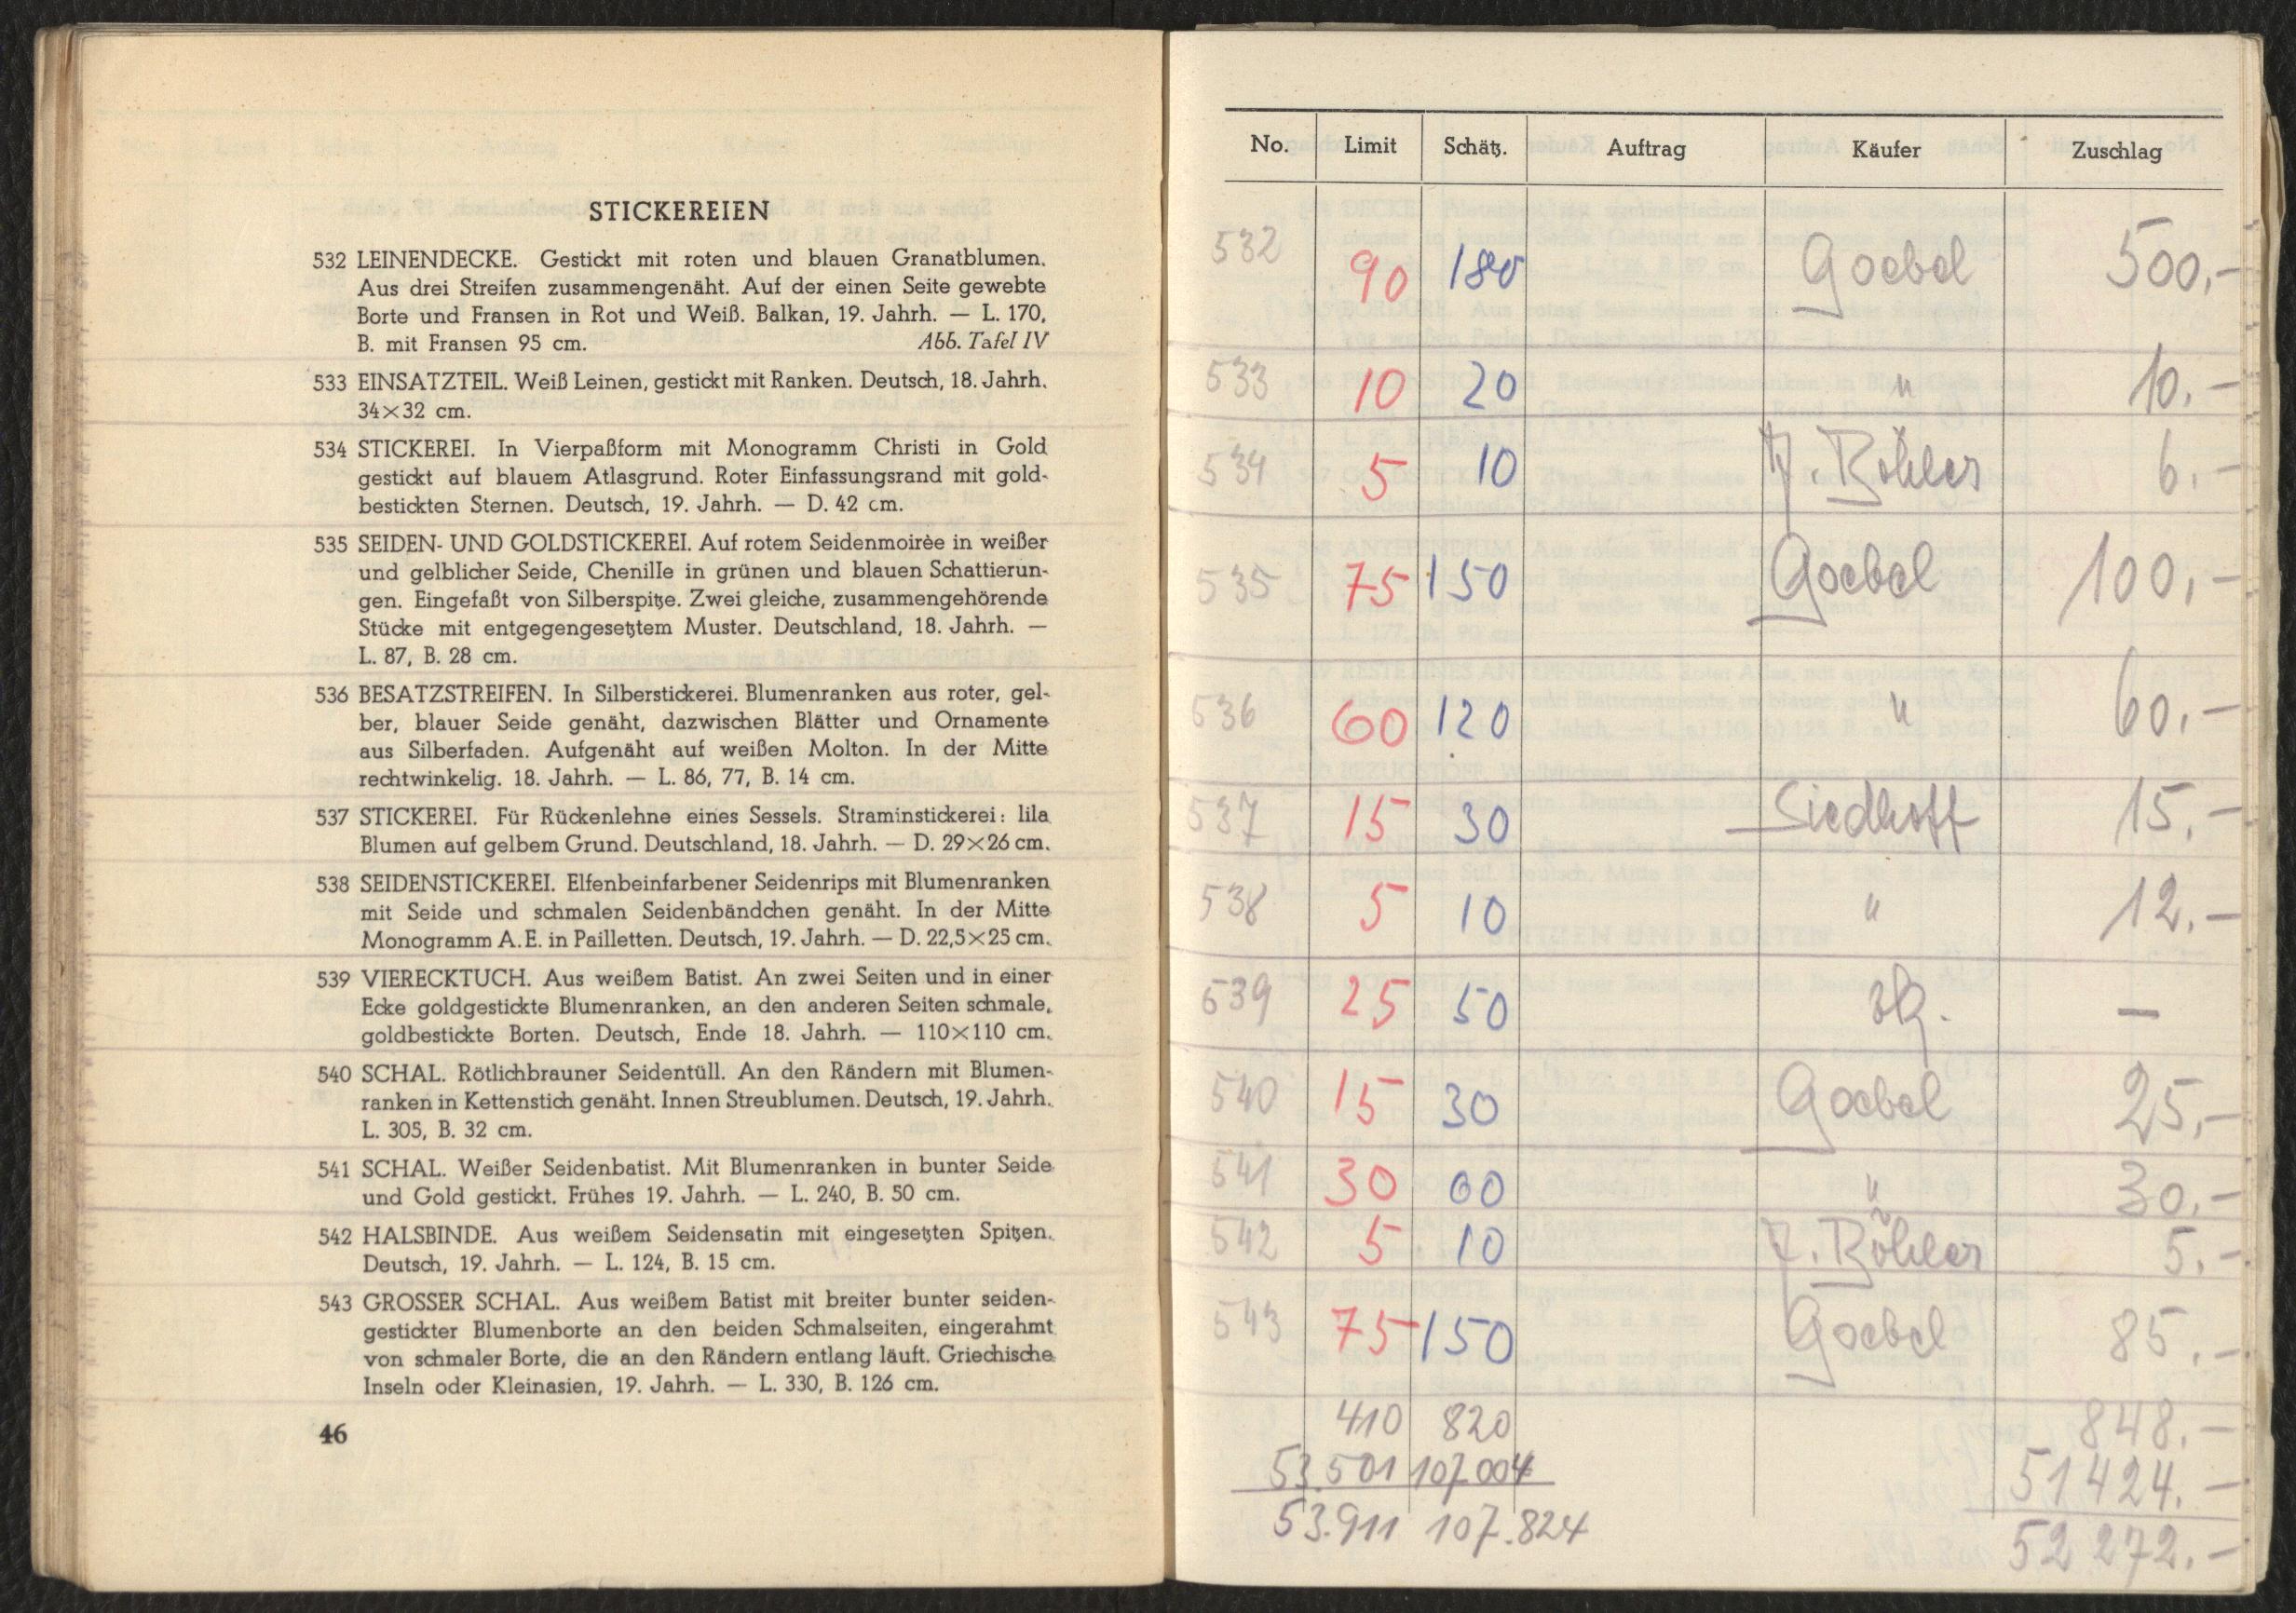 STICKEREIEN
532 LEINENDECKE. Gestickt mit roten und blauen Granatblumen.
Aus drei Streifen zusammengenäht. Auf der einen Seite gewebte
Borte und Fransen in Rot und Weiß. Balkan, 19. Jahrh. — L. 170,
B. mit Fransen 95 cm. Abb. Tafel IV
533 EINSATZTEIL. Weiß Leinen, gestickt mit Ranken. Deutsch, 18. Jahrh.
34×32 cm.
534 STICKEREI. In Vierpaßform mit Monogramm Christi in Gold
gestickt auf blauem Atlasgrund. Roter Einfassungsrand mit gold-
bestickten Sternen. Deutsch, 19. Jahrh. — D. 42 cm.
535 SEIDEN- UND GOLDSTICKEREI. Auf rotem Seidenmoirée in weißer
und gelblicher Seide, Chenille in grünen und blauen Schattierun-
gen. Eingefaßt von Silberspitze. Zwei gleiche, zusammengehörende
Stücke mit entgegengesetztem Muster. Deutschland, 18. Jahrh. —
L. 87, B. 28 cm.
536 BESATZSTREIFEN. In Silberstickerei. Blumenranken aus roter, gel-
ber, blauer Seide genäht, dazwischen Blätter und Ornamente
aus Silberfaden. Aufgenäht auf weißen Molton. In der Mitte
rechtwinkelig. 18. Jahrh. — L. 86, 77, B. 14 cm.
537 STICKEREI. Für Rückenlehne eines Sessels. Straminstickerei: lila
Blumen auf gelbem Grund. Deutschland, 18. Jahrh. — D. 29×26 cm.
538 SEIDENSTICKEREI. Elfenbeinfarbener Seidenrips mit Blumenranken
mit Seide und schmalen Seidenbändchen genäht. In der Mitte
Monogramm A. E. in Pailletten. Deutsch, 19. Jahrh. — D. 22,5×25 cm.
539 VIERECKTUCH. Aus weißem Batist. An zwei Seiten und in einer
Ecke goldgestickte Blumenranken, an den anderen Seiten schmale,
goldbestickte Borten. Deutsch, Ende 18. Jahrh. — 110×110 cm.
540 SCHAL. Rötlichbrauner Seidentüll. An den Rändern mit Blumen-
ranken in Kettenstich genäht. Innen Streublumen. Deutsch, 19. Jahrh.
L. 305, B. 32 cm.
541 SCHAL. Weißer Seidenbatist. Mit Blumenranken in bunter Seide
und Gold gestickt. Frühes 19. Jahrh. — L. 240, B. 50 cm.
542 HALSBINDE. Aus weißem Seidensatin mit eingesetzten Spitzen.
Deutsch, 19. Jahrh. — L. 124, B. 15 cm.
543 GROSSER SCHAL. Aus weißem Batist mit breiter bunter seiden-
gestickter Blumenborte an den beiden Schmalseiten, eingerahmt
von schmaler Borte, die an den Rändern entlang läuft. Griechische
Inseln oder Kleinasien, 19. Jahrh. — L. 330, B. 126 cm.
46
No. Limit Schätz. Auftrag Käufer Zuschlag
532 90 180 Goebel 500,-
533 10 20 " 10.-
534 5 10 J. Böhler 6.-
535 75 150 Goebel 100,-
536 60 120 " 60.-
537 15 30 Siedhoff 15.-
538 5 10 " 12.-
539 25 50 —
540 15 30 Goebel 25,-
541 30 60 " 30.-
542 5 10 J. Böhler 5.-
543 75 150 Goebel 85.-
410 820 848.-
53.501 107.004 51424.-
53.911 107.824 52272.-